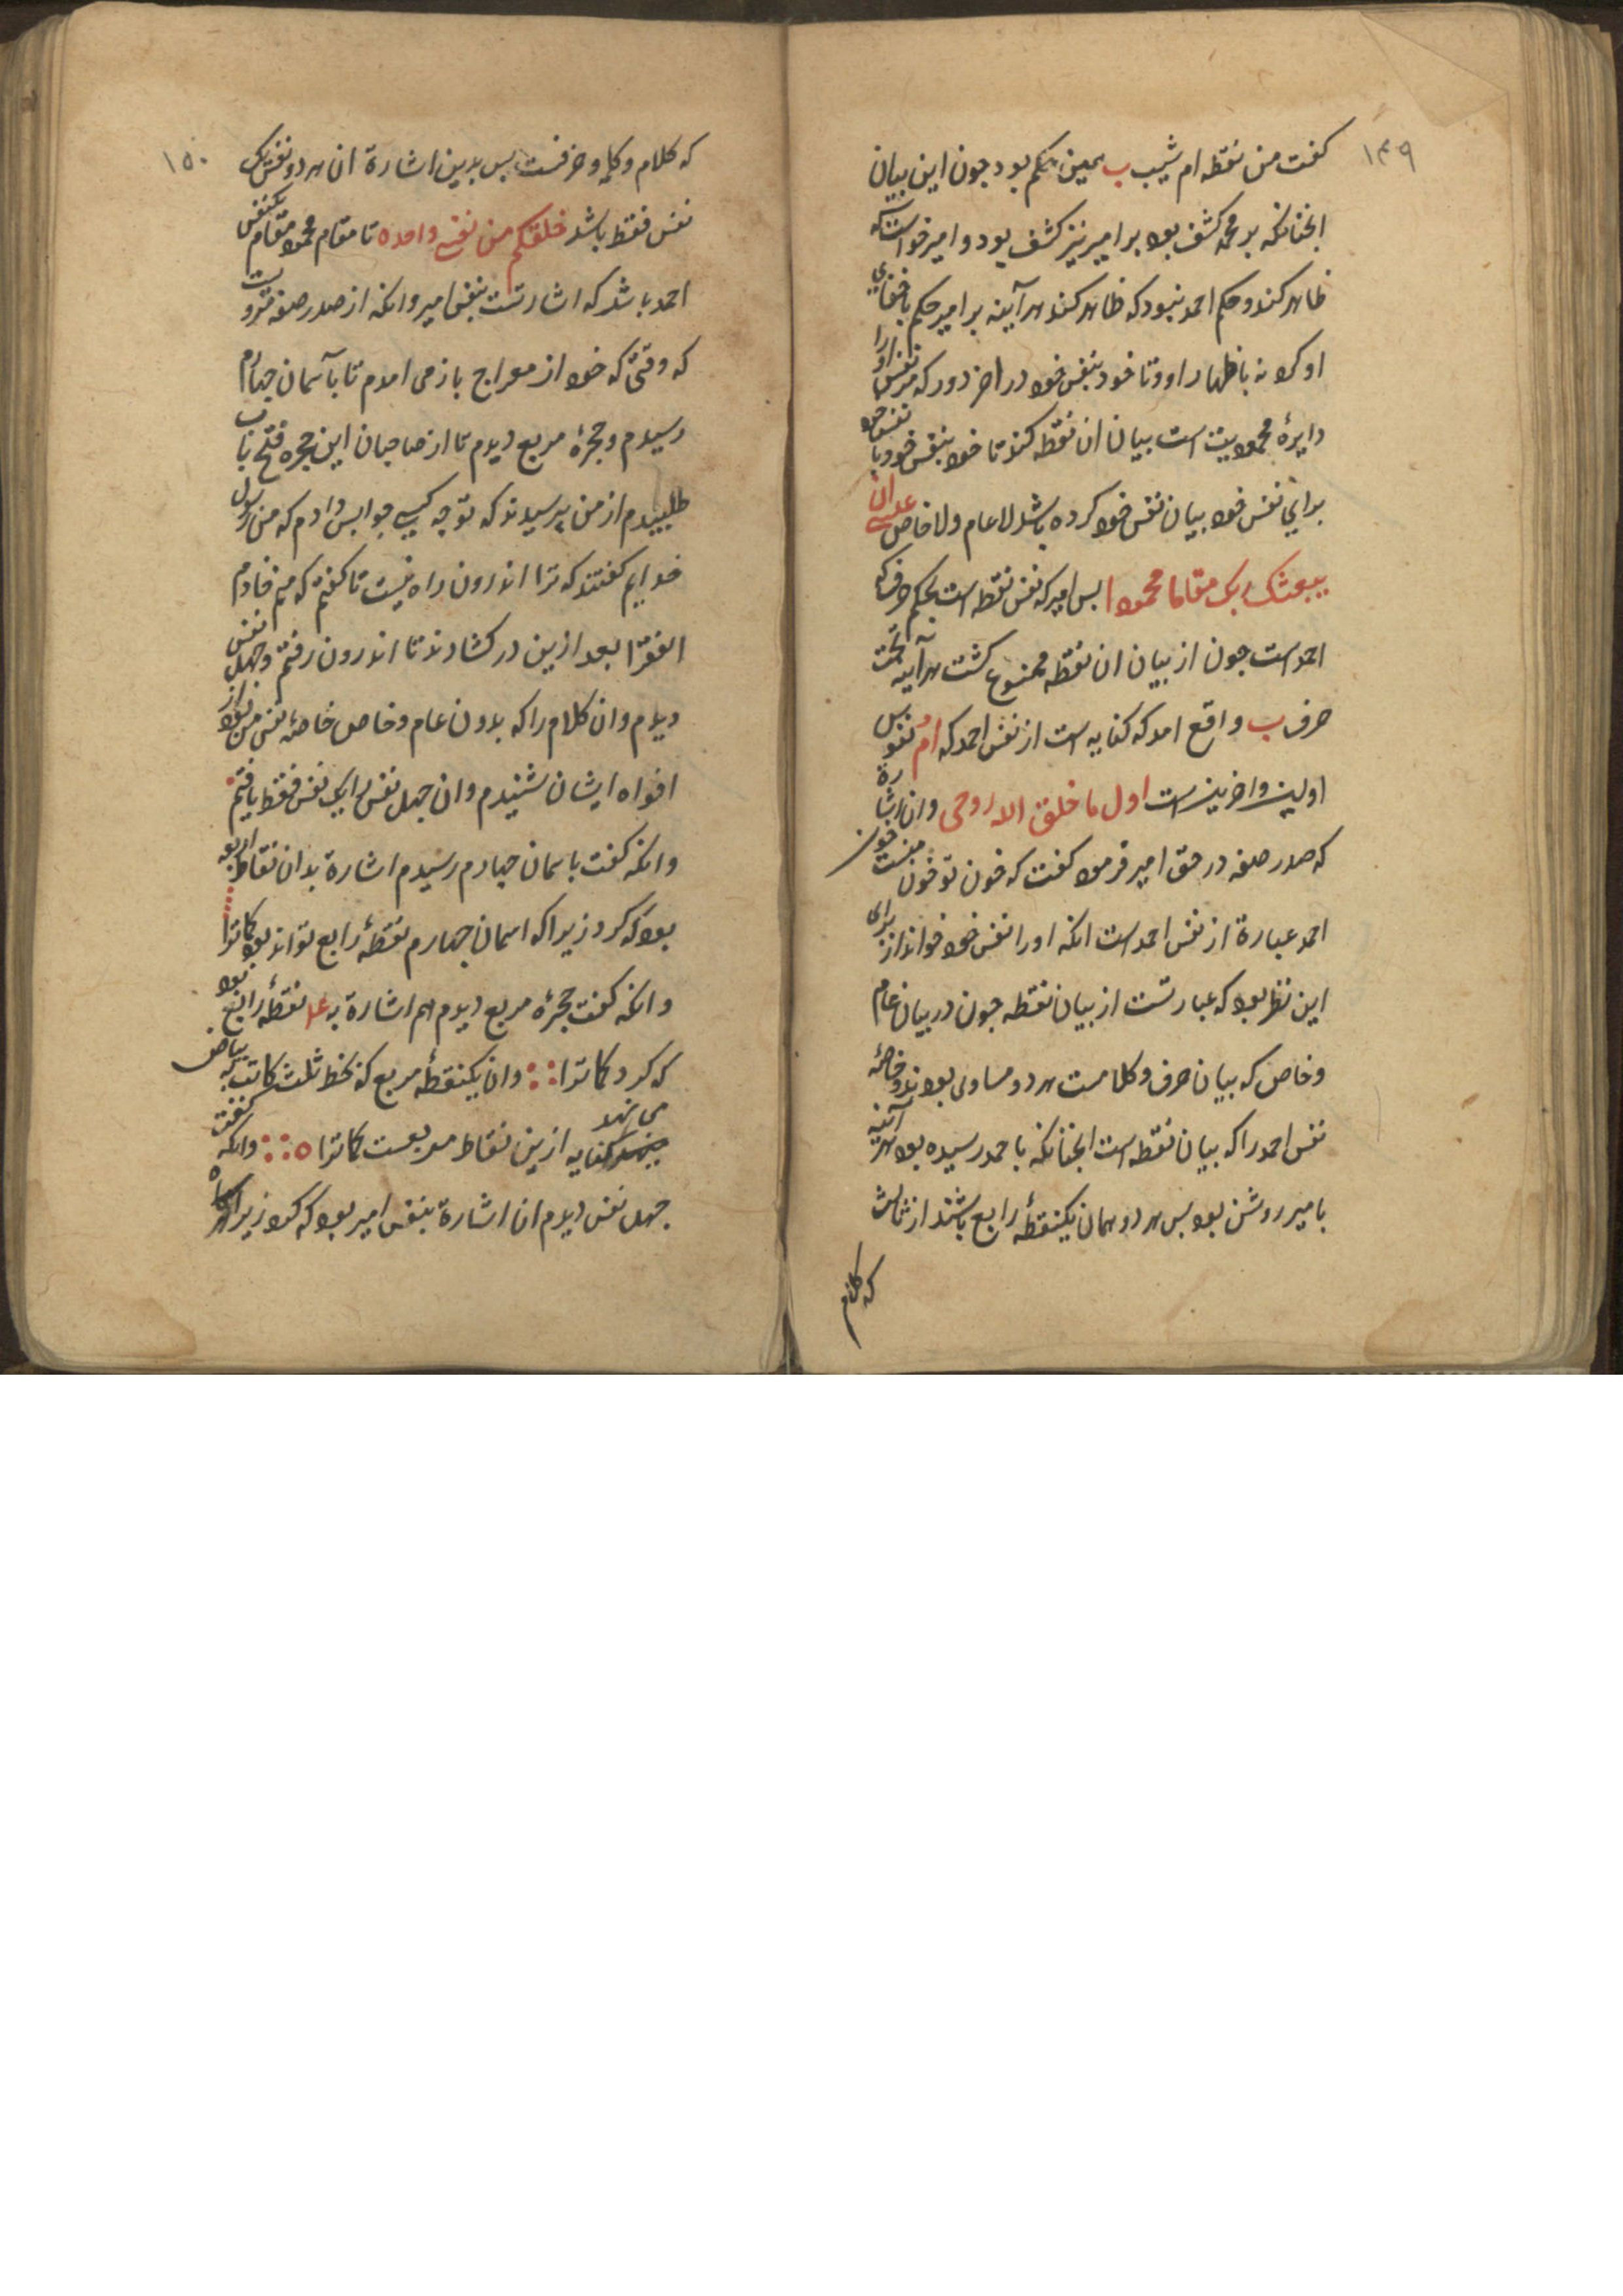 ۱۴۹
کفت من نقطه ام شیب ب همین حکم بود جون این بیان
انجنانکه بر محمد کشف بود بر امیر نیز کشف بود و امیر خواست که
ظاهر کند و حکم احمد نبود که ظاهر کند هر آینه بر امیر حکم باخفای
او کرد نه باظهار او و تا خود بنفس خود در اخر دور که مر نفس او را
دایرهٔ محمودیت است بیان ان نقطه کند تا خود بنفس خود با نفس خود
برای نفس خود بیان نفس خود کرده باشد لا عام ولا خاص عسی ان
یبعثک ربک مقاما محمودا بس امیر که نفس نقطه است بحکم حرف که
احمد است جون از بیان ان نقطه ممنوع کشت هر آینه تحت
حرف ب واقع امد که کنایه است از نفس احمد که ام نفوس
اولین واخرین است اول ما خلق الله روحی وان اشارة
که صدر صفه در حق امیر فرمود کفت که خون تو خون منست خون
احمد عبارة از نفس احمد است انکه او را نفس خود خواند از برای
این نظر بود که عبارتست از بیان نقطه جون در بیان عام
وخاص که بیان حرف و کلامست هر دو مساوی بودند و خاصهٔ
نفس احمد را که بیان نقطه است انجنانکه با احمد رسیده بود هر آینه
با میر روشن بود بس هر دو همان یکنقطهٔ رابع باشند از ثالث
که کلام
۱۵۰
که کلام و کلمه و حرفست بس بدین اشارة ان هر دو نفس یک
نفس فقط باشد خلقکم من نفس واحده تا مقام محمود مقام یکنفس
احمد باشد که اشارتست بنفس امیر وانکه از صدر صفه مرویست
که وقتی که خود از معراج باز می امدم تا بآسمان جهارم
رسیدم و حجرهٔ مربع دیدم تا از صاحبان این حجره فتح باب
طلبیدم از من پرسیدند که تو جه کسی جوابس دادم که من رسول
خدایم کفتند که ترا اندرون راه نیست تا کفتم که منم خادم
الفقرا بعد ازین در کشادند تا اندرون رفتم و جهل نفس
دیدم وان کلام را که بدون عام وخاص خاصهٔ نفس من بود از
افواه ایشان شنیدم وان جهل نفس را یک نفس فقط یافتم
وانکه کفت باسمان جهارم رسیدم اشارة بدان نقاط اربعه
بود که کرد زیرا که اسمان جهارم نقطهٔ رابع تواند بود کماترا
وانکه کفت حجرهٔ مربع دیدم هم اشارة بد نقطهٔ رابع بود
که کرد کماترا وان یکنقطهٔ مربع که بخط ثلث کاتب به بیاض
می نهد کنایه ازین نقاط مربعست کماترا ه وانکه کفت
جهل نفس دیدم ان اشارة بنفس امیر بود که کرد زیرا که